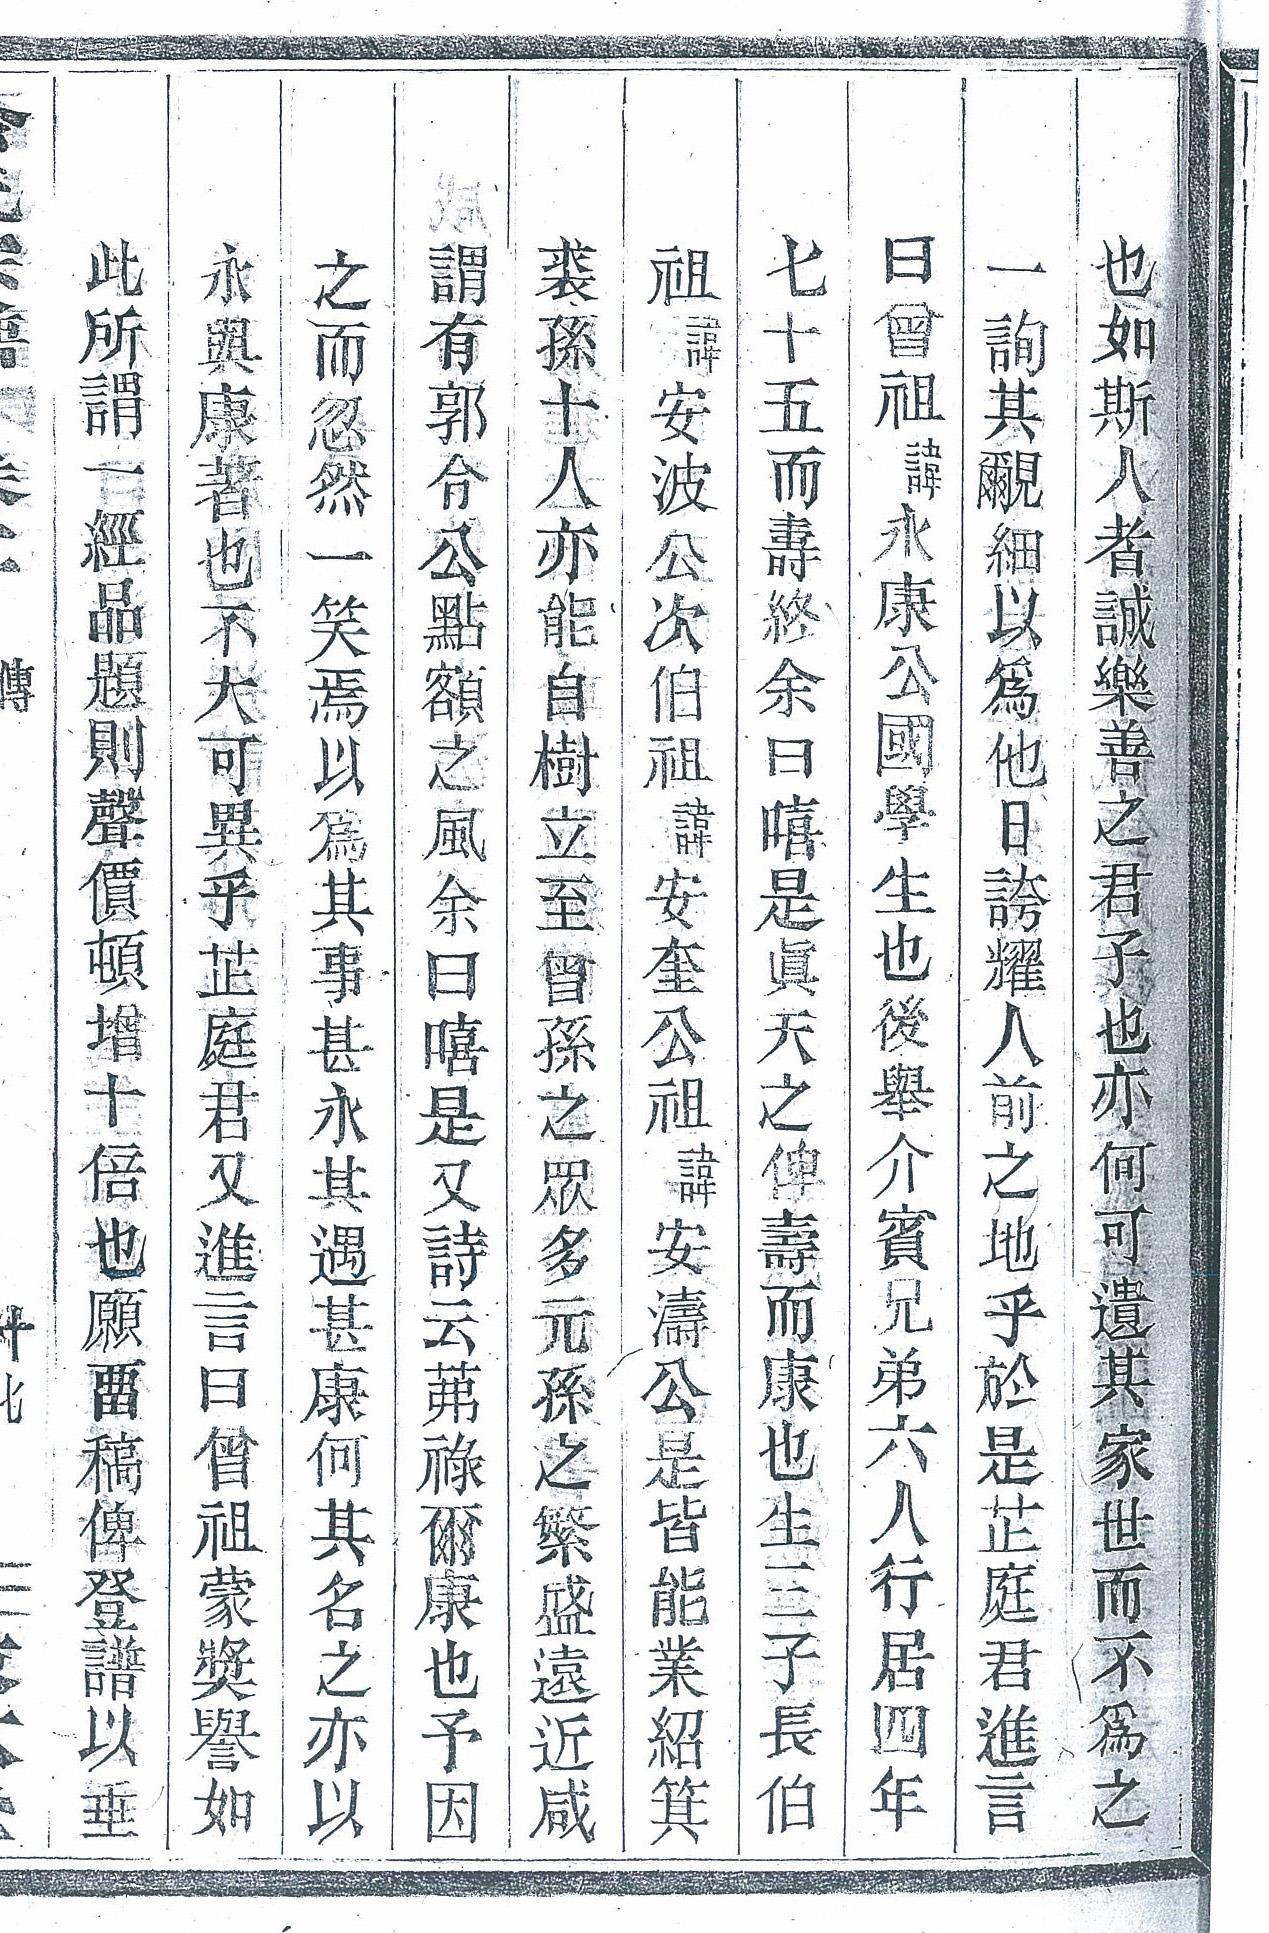 也如斯人者誠樂善之君子也亦何可遺其家世而不爲之
一詢其覼細以爲他日誇耀人前之地乎於是芷庭君進言
曰曾祖諱永康公國學生也後舉介賓兄弟六人行居四年
七十五而壽終余曰嘻是眞天之俾壽而康也生三子長伯
祖諱安波公次伯祖諱安奎公祖諱安濤公是皆能業紹箕
裘孫十人亦能自樹立至曾孫之眾多元孫之繁盛遠近咸
謂有郭令公點額之風余曰嘻是又詩云茀祿爾康也予因
之而忽然一笑焉以爲其事甚永其遇甚康何其名之亦以
永與康著也不大可異乎芷庭君又進言曰曾祖蒙獎譽如
此所謂一經品題則聲價頓增十倍也願畱稿俾登譜以垂
傳